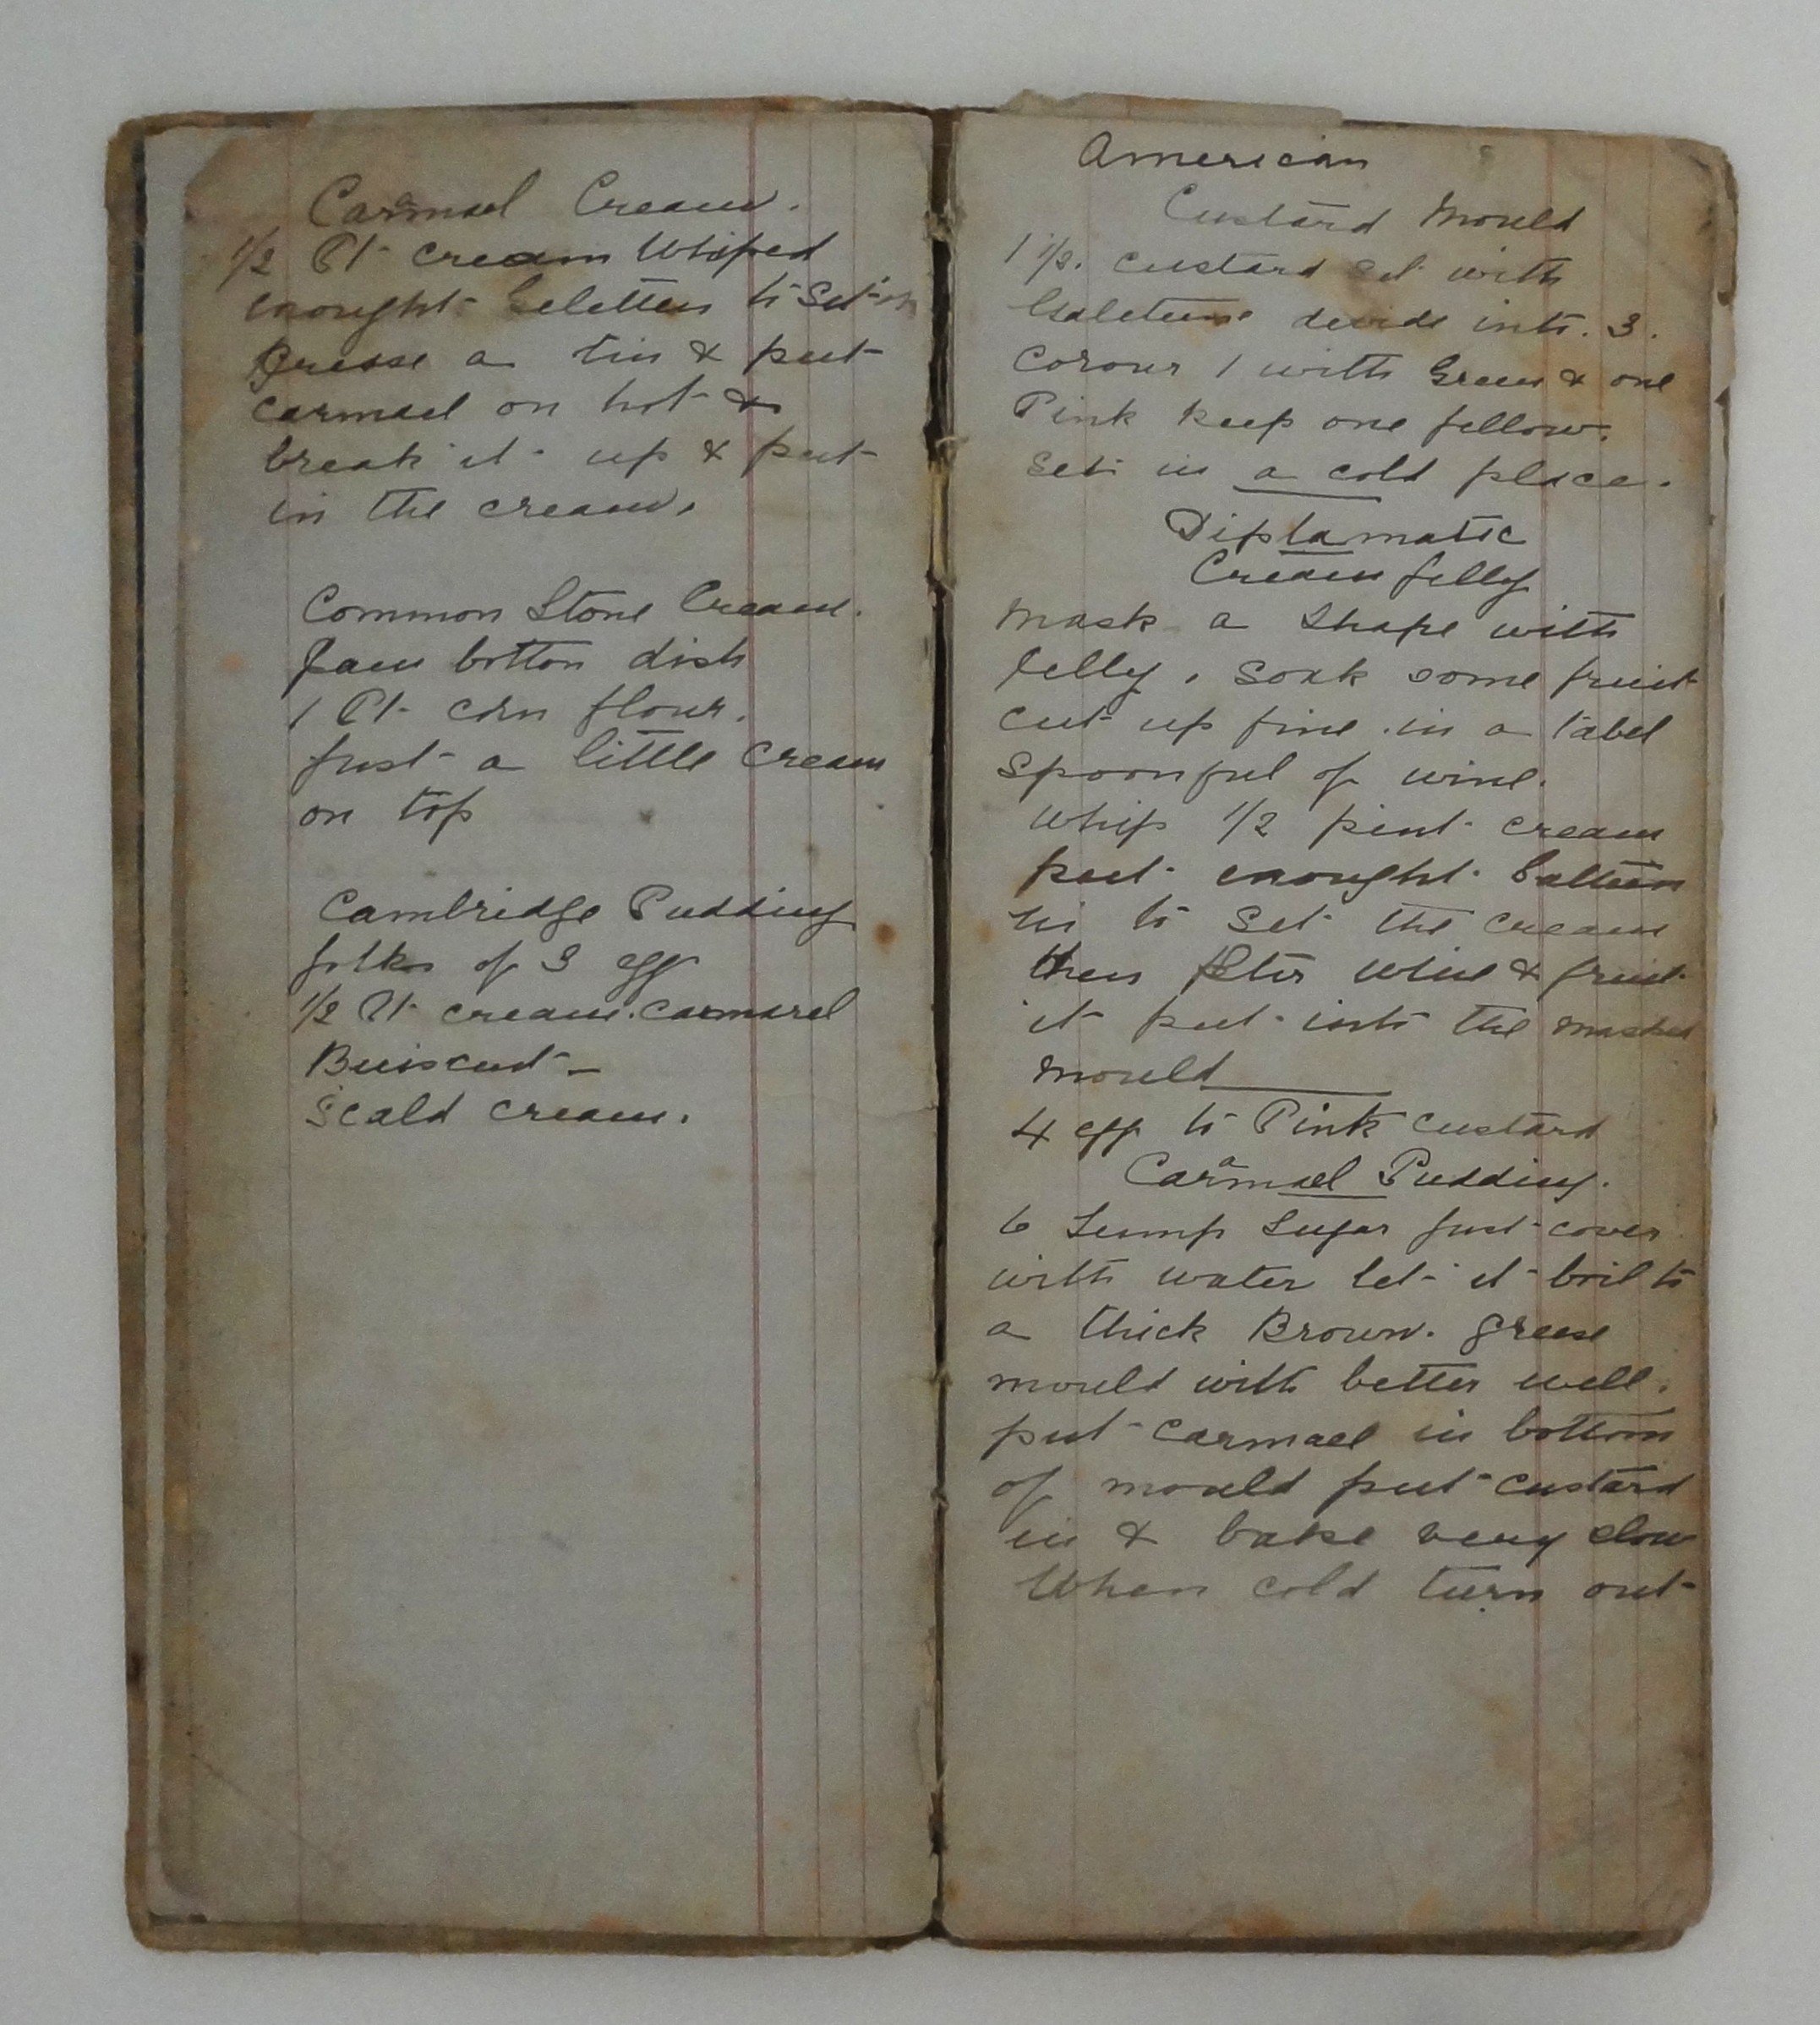 Caramael Cream.
1/2 Pt cream Whiped
enought Geletten to Set
Grease a tin & put
carmael on hot &
break it up & put
in the cream.
Common Stone Cream.
Jam botton dish
1 Pt corn flour.
Just a little cream
on top
Cambridge Pudding
yolks of 3 egg
1/2 Pt cream. Carmarel
Buiscut
Scald cream.
American
Custard Mould
1 1/2. custard set with
devide into. 3.
Corour 1 with Green & one
Pink keep one yellow.
Set in a cold place.
Diplamatic
Cream Jelly
Mask a Shape with
Jelly, Soak some fruit
cut up fine in a tabel
Spoonful of wine.
Whip 1/2 pint cream
put enought
in to Set the cream
then Wine & fruit
it put into the masked
mould
4 egg to Pink custard
Caramael Pudding.
6 Lump Sugar Just cover
with water let it boil to
a thick Brown. Grease
mould with better well.
put Carmael in bottom
of mould put custard
in & bake very slow
When cold turn out